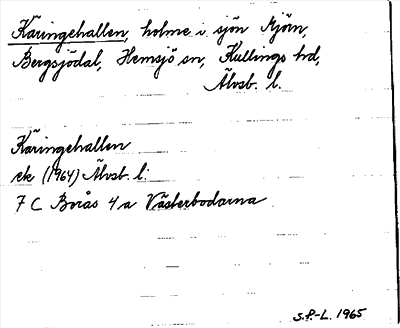 Käringehallen, holme i sjön Mjörn,
Bergsjödal, Hemsjö sn, Kullings hd,
Älvsb. l.
Käringehallen
ek (1964) Älvsb. l.
7 C Borås 4 a Västerbodarna
S.P.-L. 1965